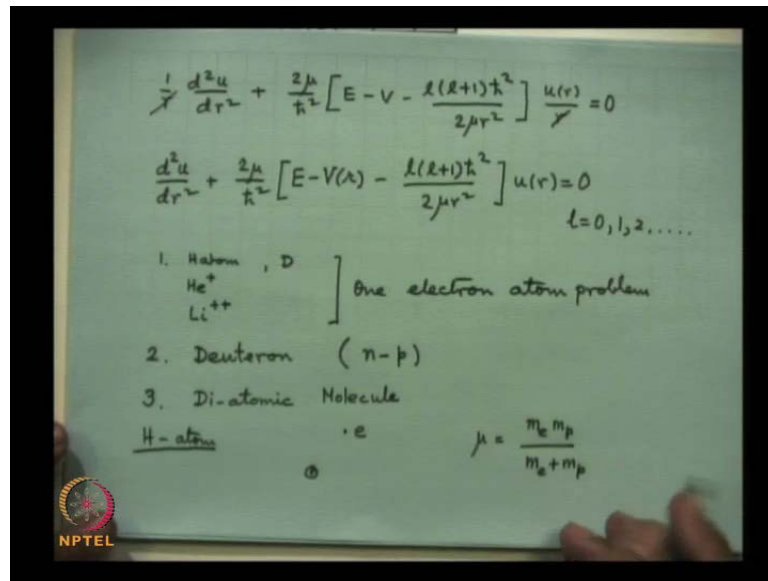 1/r d²u/dr² + 2μ/ħ² [E - V - l(l+1)ħ²/2μr²] u(r)/r = 0
d²u/dr² + 2μ/ħ² [E - V(r) - l(l+1)ħ²/2μr²] u(r) = 0
l = 0, 1, 2, .....
1. H atom , D
He⁺
Li⁺⁺
] One electron atom problem
2. Deuteron ( n-p )
3. Di-atomic Molecule
H-atom · e μ = mₑ mₚ / mₑ + mₚ
NPTEL